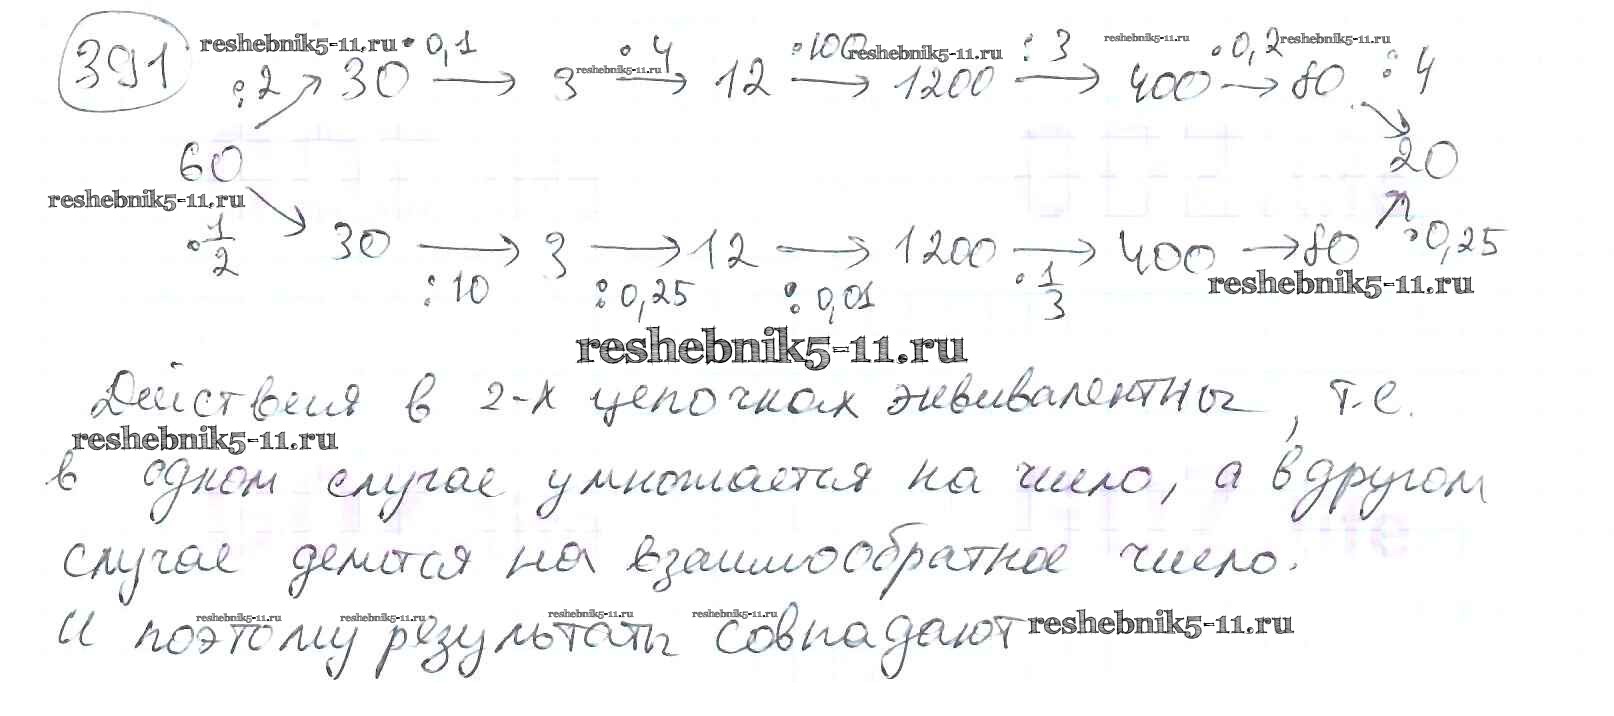 391 reshebnik5-11.ru · 0,1 · 4 · 100 reshebnik5-11.ru : 3 reshebnik5-11.ru · 0,2 reshebnik5-11.ru : 4
: 2 30 → 3 reshebnik5-11.ru → 12 → 1200 → 400 → 80
60 20
reshebnik5-11.ru
· 1/2 30 → 3 → 12 → 1200 → 400 → 80 · 0,25
: 10 : 0,25 : 0,01 · 1/3 reshebnik5-11.ru
reshebnik5-11.ru
Действия в 2-х цепочках эквивалентны, т.е.
reshebnik5-11.ru
в одном случае умножается на число, а в другом
случае делится на взаимообратное число.
reshebnik5-11.ru reshebnik5-11.ru reshebnik5-11.ru reshebnik5-11.ru
И поэтому результаты совпадают reshebnik5-11.ru